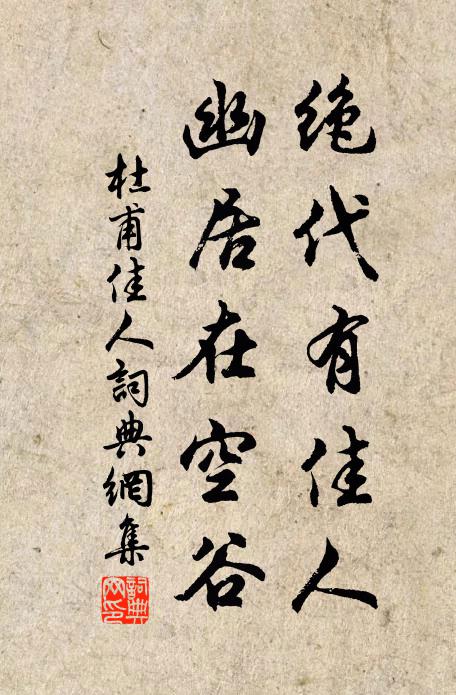 絶代有佳人
幽居在空谷
杜甫佳人詞典網集
詞典网印